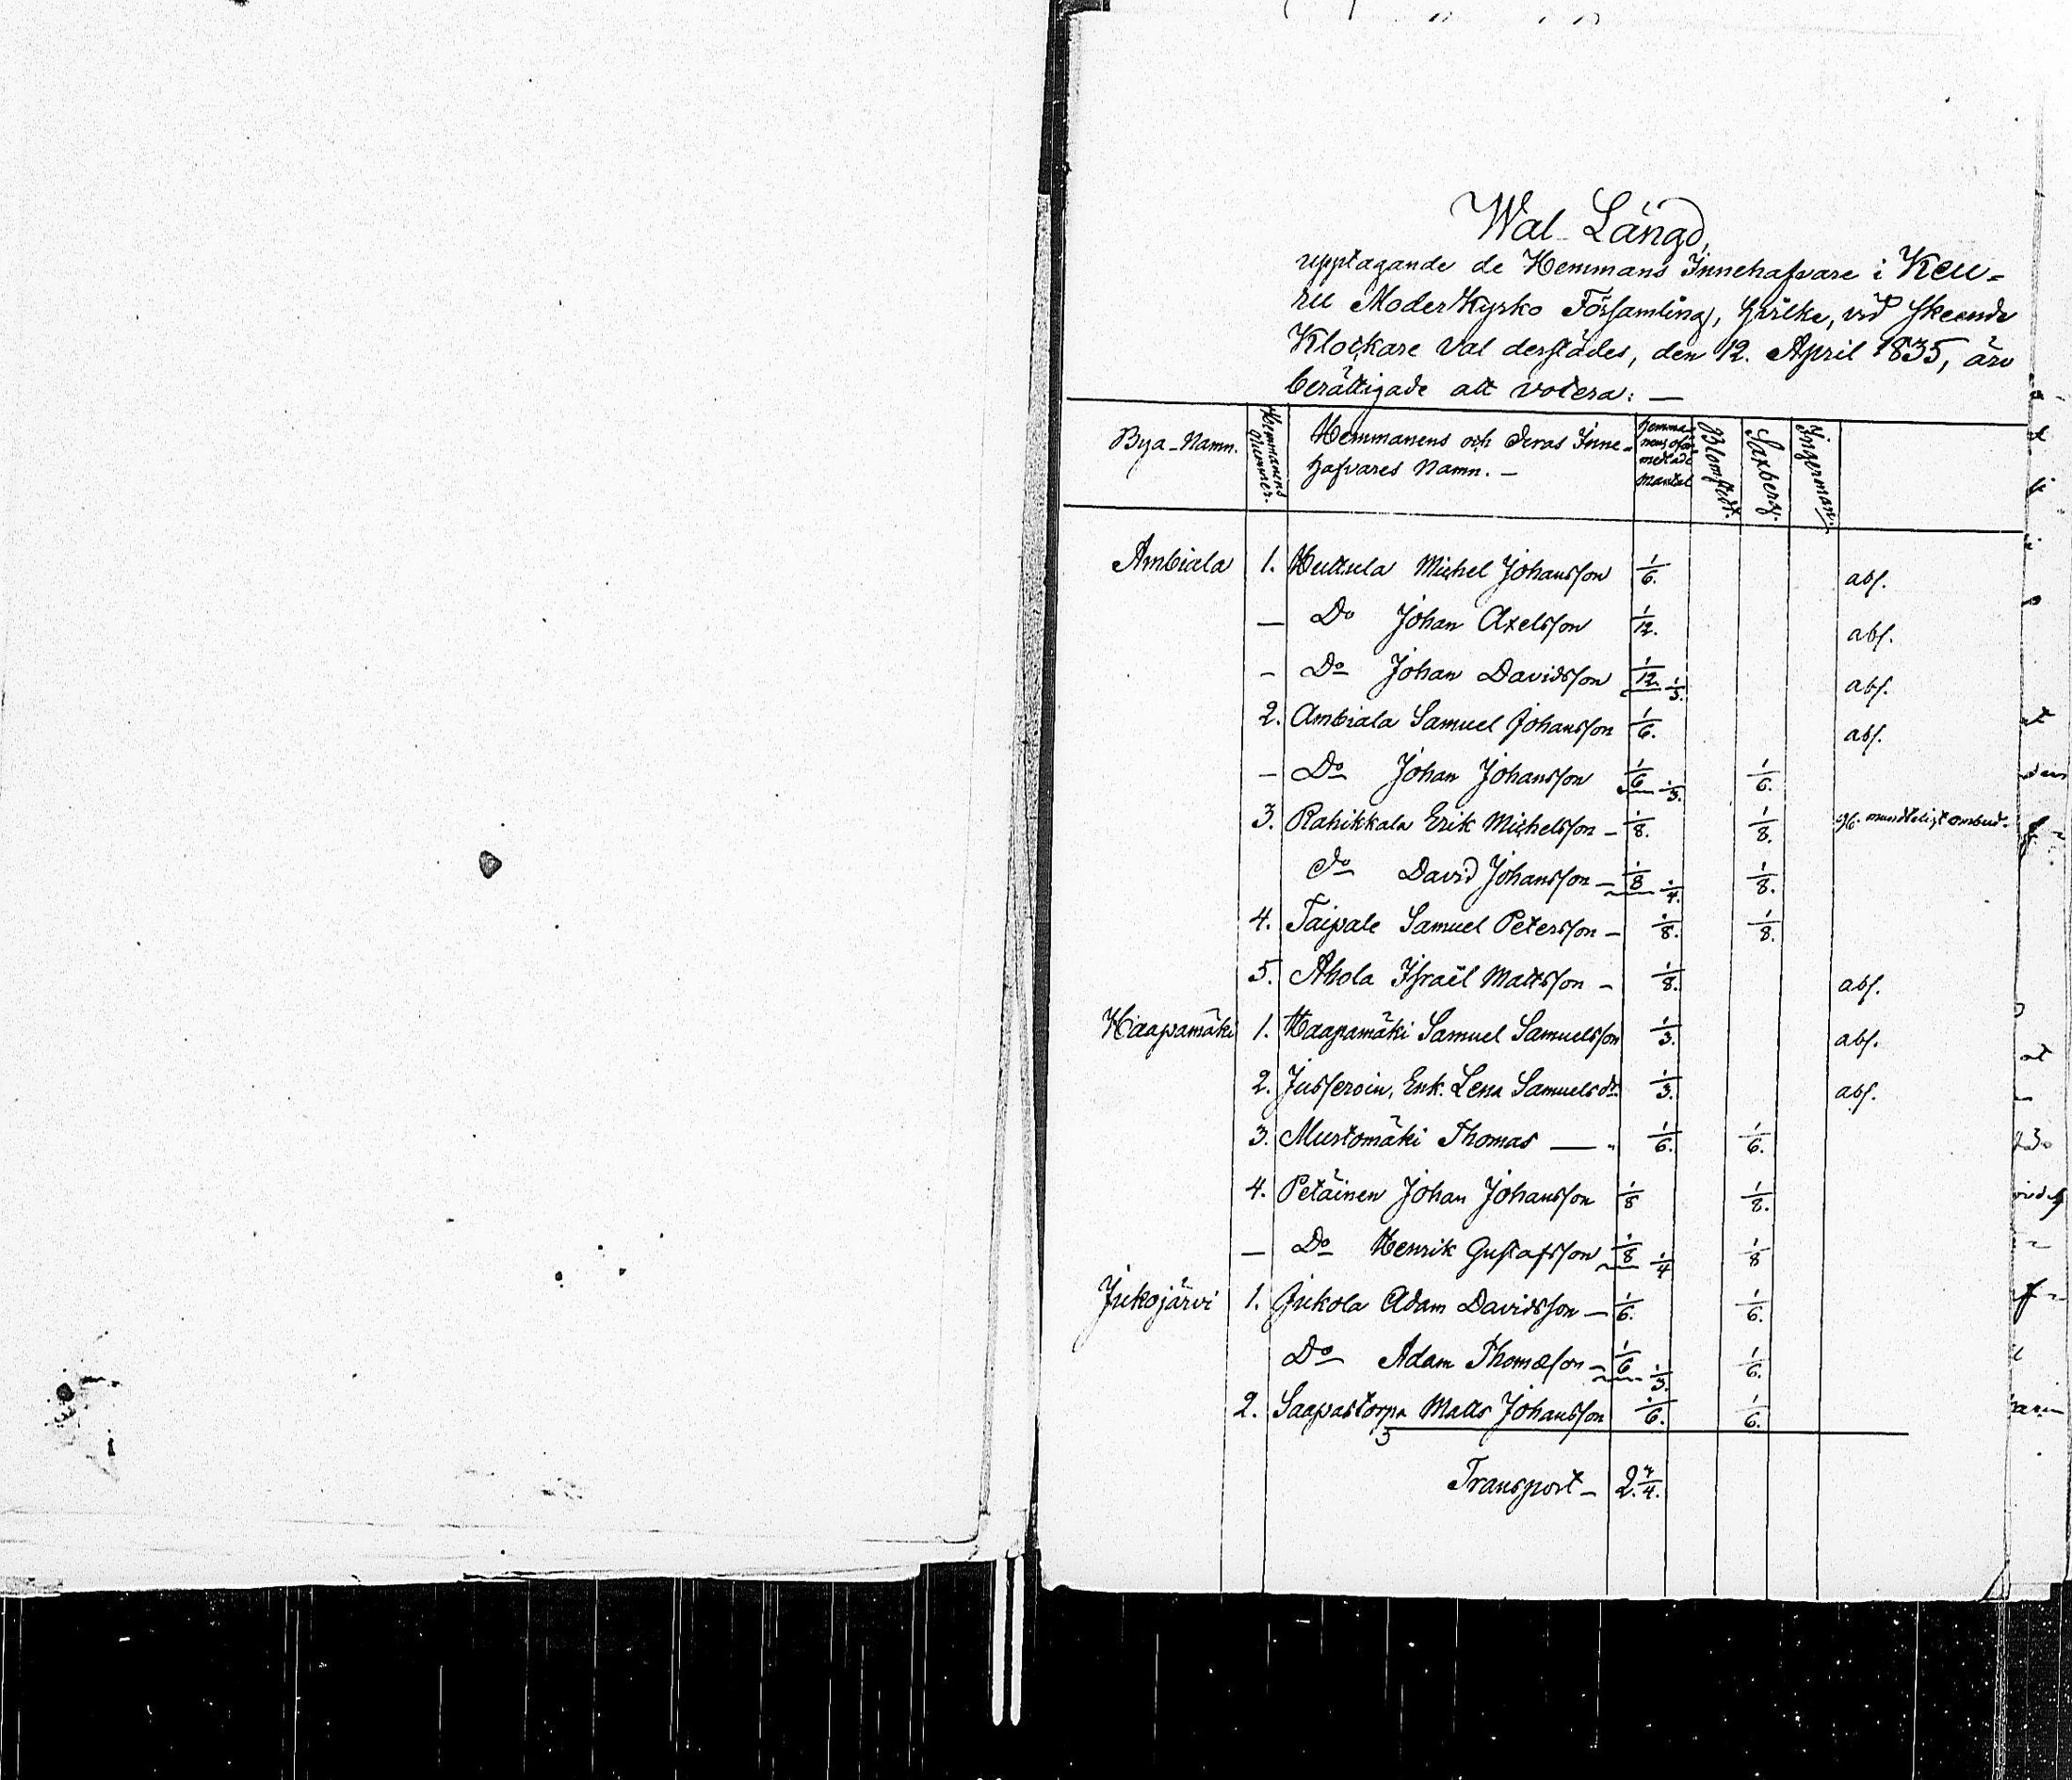 Wal Längd,
upptagande de Hemmans Innehafvare i Keu-
ru Moder Kyrko Församling, hvilke, vid skeende
Klockare val derstädes, den 12. April 1835, äro
berättigade att votera: —
Bya-Namn. Hemmanens Nummer. Hemmanens och deras Inne- Hemma- Blomstedt. Saxberg. Ingerman.
hafvares Namn. — mantal
Ambiala 1. Huttula Michel Johansson 1/6. abs.
— Do Johan Axelsson 1/12. abs.
- Do Johan Davidsson 1/12. 1/3. abs.
2. Ambiala Samuel Johansson 1/6. abs.
- Do Johan Johansson 1/6 1/3. 1/6.
3. Rahikkala Erik Michelsson - 1/8. 1/8. mundteligt ombud.
do David Johansson - 1/8 1/4. 1/8.
4. Taipale Samuel Petersson - 1/8. 1/8.
5. Ahola Israël Mattsson - 1/8. abs.
Haapamäki 1. Haapamäki Samuel Samuelsson 1/3. abs.
2. Jusseroin, Enk. Lena Samuelsdr. 1/3. abs.
3. Mustomäki Thomas — " 1/6. 1/6.
4. Petäinen Johan Johansson 1/8 1/8.
— Do Henrik Gustafsson 1/8 1/4 1/8
Jukojärvi 1. Jukola Adam Davidsson - 1/6. 1/6.
Do Adam Thomæson - 1/6 1/3. 1/6.
2. Saapastorpa Matts Johansson 1/6. 1/6.
Transport - 2.